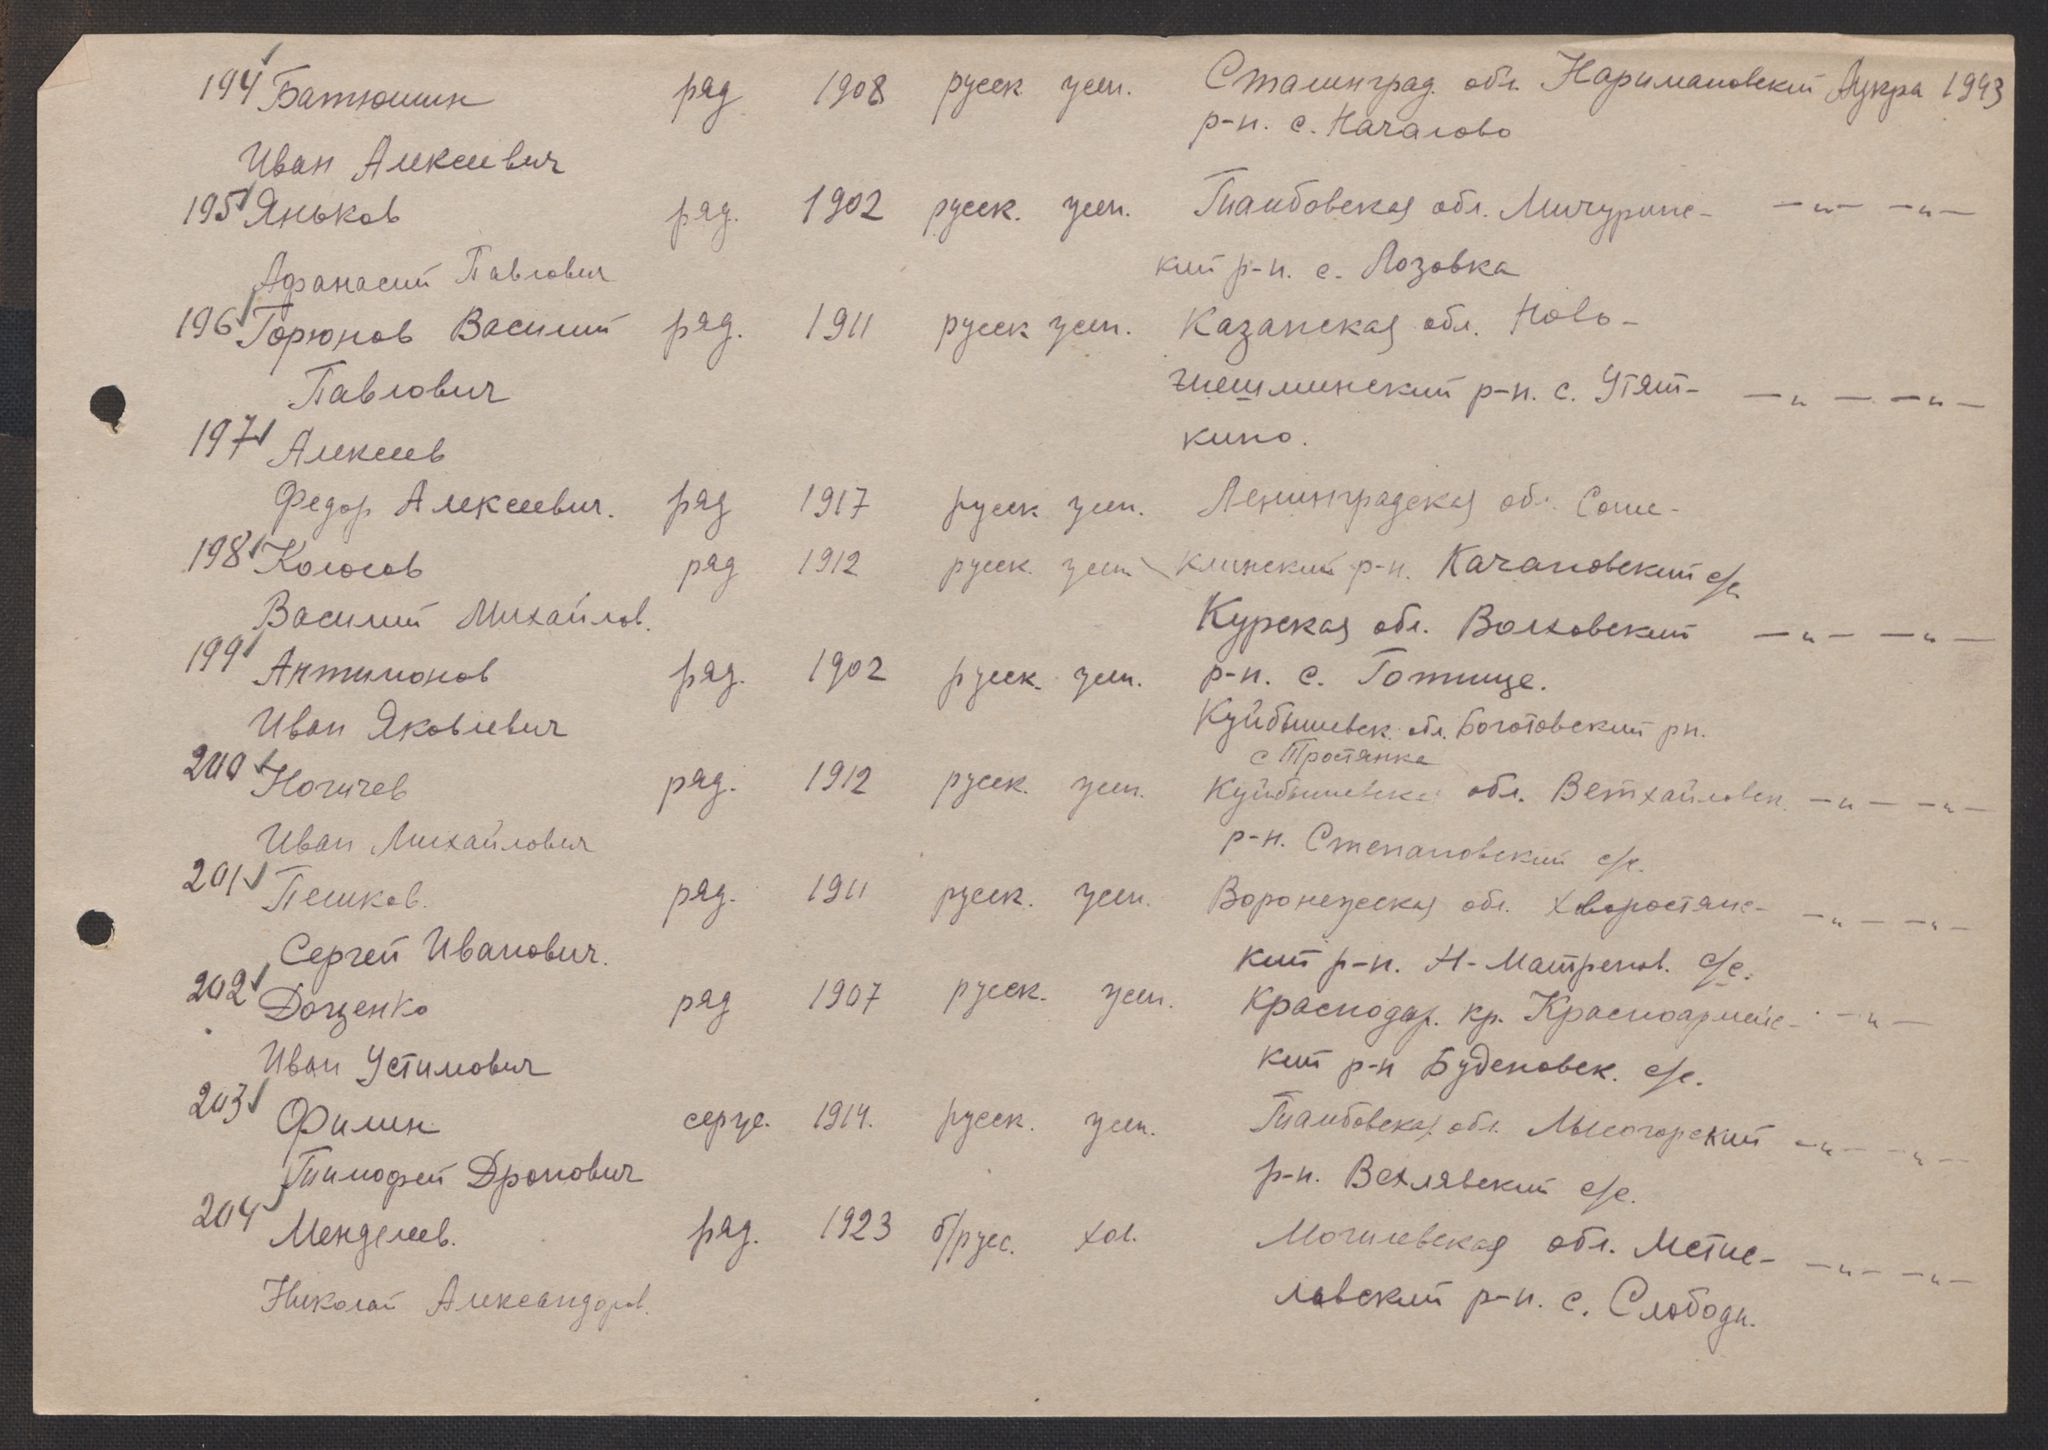 194 Батюшин ряд 1908 русск усл. Сталинград. обл. Наримановский Аукра 1943
р-н. с. Началово
Иван Алексеевич
195 Яньков ряд. 1902 русск. усл. Тамбовская обл. Мичуринс- —"— —"—
Афанасий Павлович кий р-н. с. Лозовка
196 Горюнов Василий ряд. 1911 русск усл. Казанская обл. Ново-
Павлович шешминский р-н. с. Утят- —"— —"—
197 Алексеев кино.
Федор Алексеевич. ряд 1917 русск усл. Ленинградская обл. Соше-
198 Колосов ряд 1912 русск. усл клинский р-н. Качановский с/с
Василий Михайлов. Курская обл. Волховский —"— —"—
199 Антимонов ряд. 1902 русск. усл. р-н. с. Готище.
Иван Яковлевич Куйбышевск. обл. Боготовский рн.
с Тростянка
200 Ногичев ряд. 1912 русск. усл. Куйбышевска обл. Ветхайловск. —"— —"—
Иван Михайлович р-н. Степановский с/с.
201 Пешков. ряд. 1911 русск. усл. Воронежская обл. Хворостянс- —"— —"—
Сергей Иванович. кий р-н. Н-Матренов. с/с.
202 Доценко ряд 1907 русск. усл. Краснодар. кр. Красноармейс- —"—
Иван Устимович кий р-н Буденовск. с/с.
203 Филин серж. 1914. русск. усл. Тамбовская обл. Лысогорский —"— —"—
Тимофей Дронович р-н. Вехлявский с/с.
204 Менделеев. ряд. 1923 б/русс. хол. Могилевская обл. Мстис- —"— —"—
Николай Александров. лавский р-н. с. Слободи.